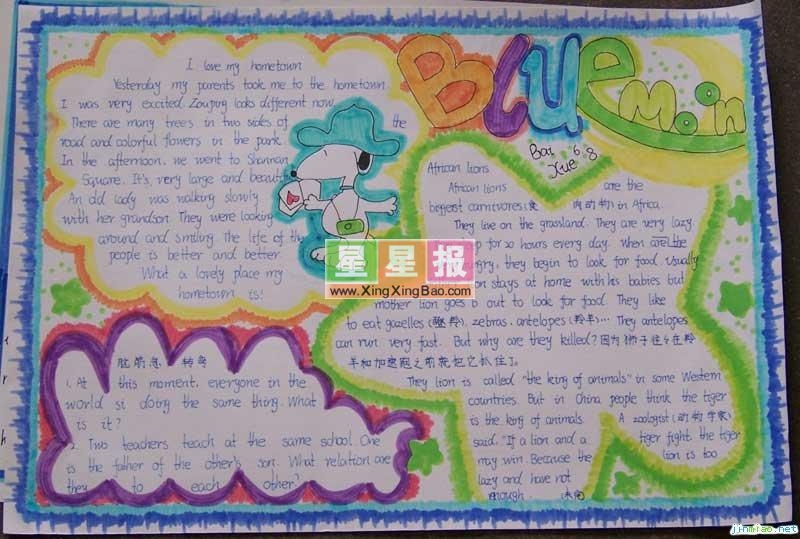 I love my hometown
Yesterday my parents took me to the hometown.
I was very excited. Zouping looks different now.
There are many trees in two sides of the
road and colorful flowers in the park.
In the afternoon, we went to
Square. It's, very large and beautiful
An old lady was walking slowly
with her grandson. They were looking
around and smiling. The life of the
people is better and better.
What a lovely place my
hometown is!
BLUE MOON
Bai 6.8
Xue
African lions
African lions are the
biggest carnivores(食 肉动物) in Africa.
They live on the grassland. They are very lazy.
p for 20 hours every day. When are the
ngry, they begin to look for food. Usually
on stays at home with his babies but
mother lion goes b out to look for food. They like
to eat gazelles (瞪羚), zebras, antelopes (羚羊)... They antelopes
can run very fast. But why are they killed? 因为狮子往往在羚
羊和加速冠之前就把它抓住了。
They lion is called "the king of animals" in some Western
countries. But in China people think the tiger
is the king of animals. A zoologist (动物学家)
said. "If a lion and a tiger fight. the tiger
may win. Because the lion is too
lazy and have not
enough
脑筋急 转弯
1. At this moment, everyone in the
world si doing the same thing. What
is it?
2. Two teachers teach at the same school. One
is the father of the other's son. What relation are
they to each other?
星星报
www.XingXingBao.com
jinmiao.net